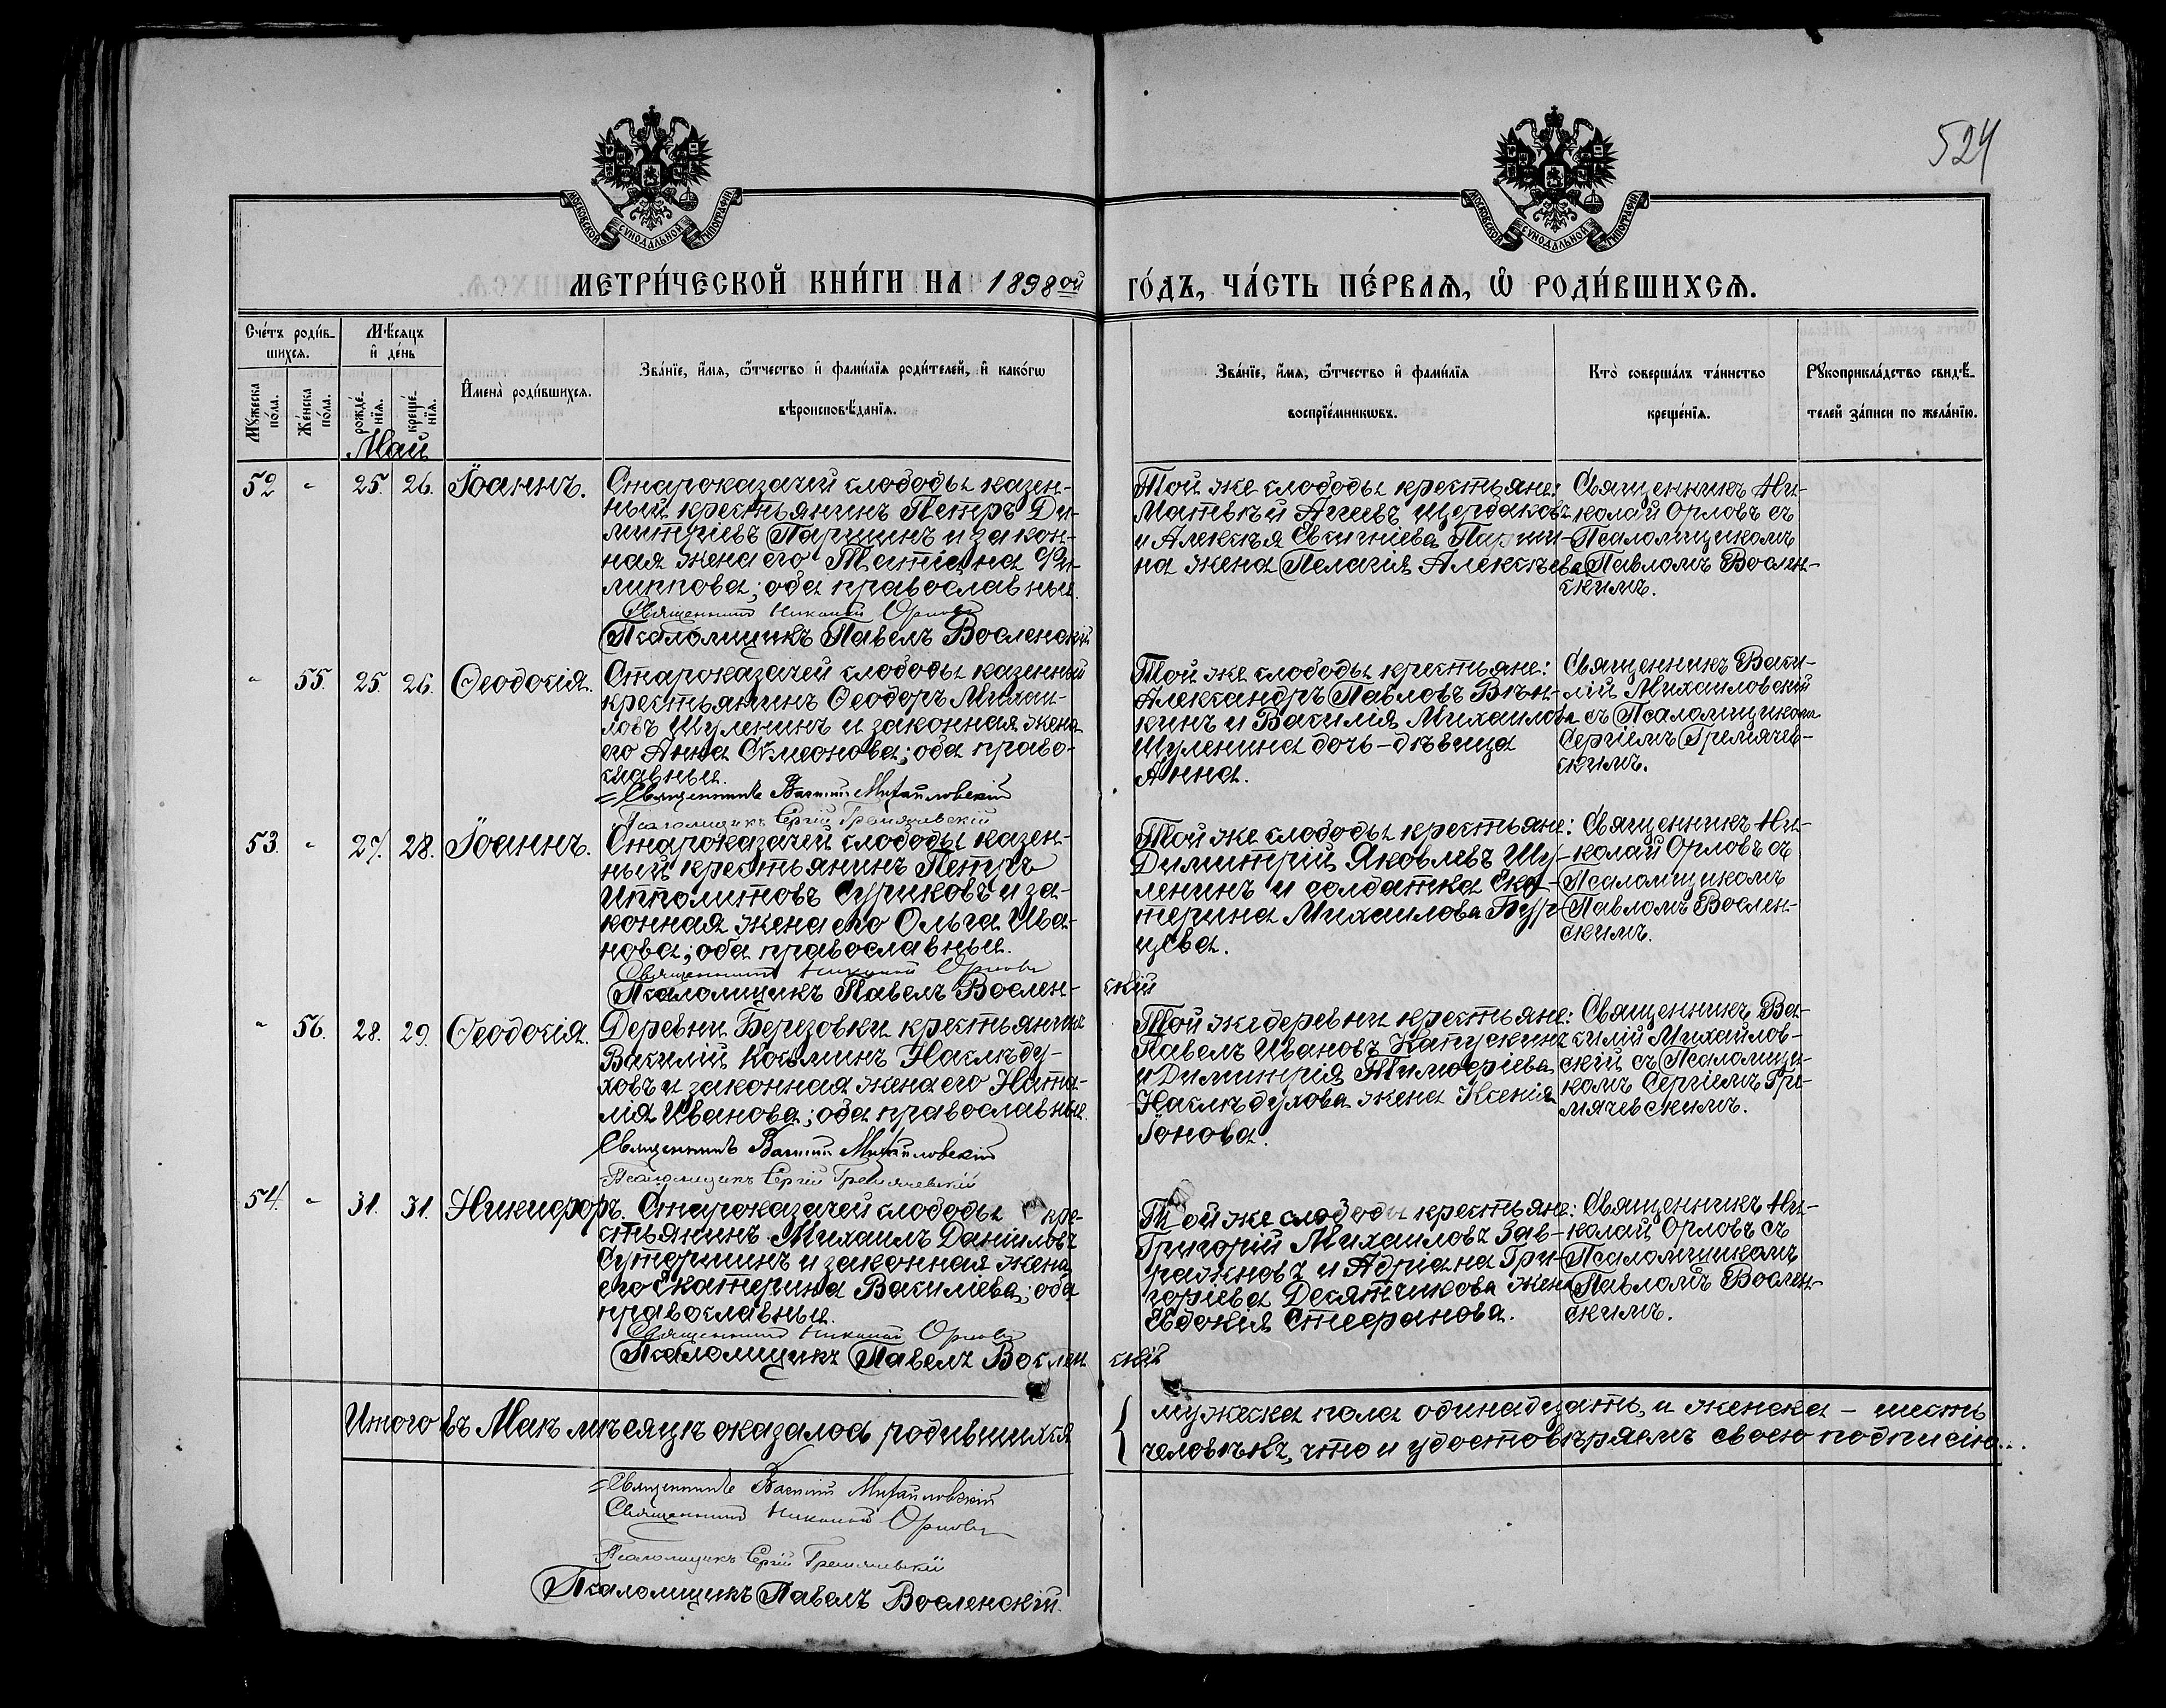 524
МОСКОВСКОЙ СѴНОДАЛЬНОЙ ТИПОГРАФІИ
МОСКОВСКОЙ СѴНОДАЛЬНОЙ ТИПОГРАФІИ
МЕТРИ́ЧЕСКОЙ КНИ́ГИ НА 1898ой ГО́ДЪ, ЧА́СТЬ ПЕ́РВАѦ, Ѡ҆ РОДИ́ВШИХСѦ.
Сче́тъ роди́в-
шихсѧ.
Мѣ́сѧцъ
и҆ де́нь
Мꙋ́жеска
по́ла.
Же́нска
по́ла.
рожде́-
нїѧ.
креще́-
нїѧ.
И҆мена̀ роди́вшихсѧ.
Зва́нїе, и҆́мѧ, ѻ҆́тчество и҆ фами́лїѧ роди́телей, и҆ како́гѡ
вѣроисповѣ́данїѧ.
Зва́нїе, и҆́мѧ, ѻ҆́тчество и҆ фами́лїѧ
воспрїе́мникѡвъ.
Кто̀ соверша́лъ та́инство
креще́нїѧ.
Рꙋкоприкла́дство свидѣ́-
телей за́писи по жела́нїю.
Май
52 " 25. 26. Іоаннъ.
Староказачей слободы казен-
ный крестьянинъ Петръ Ди-
митріевъ Паршинъ и закон-
ная жена его Татіана Фи-
липпова; оба православные.
Священникъ Николай Орловъ
Псаломщикъ Павелъ Восленскій
Той же слободы крестьяне:
Матвѣй Агеевъ Щердаковъ
и Алексѣя Евсигніева Парши-
на жена Пелагія Алексѣева
Священникъ Ни-
колай Орловъ съ
Псаломщикомъ
Павломъ Вослен-
скимъ.
" 55. 25. 26. Ѳеодосія.
Староказачей слободы казенный
крестьянинъ Ѳеодоръ Михаи-
ловъ Шуленинъ и законная жена
его Анна Сѵмеонова; оба право-
славные.
Священникъ Василій Михайловскій
Псаломщикъ Сергій Гремячевскій
Той же слободы крестьяне:
Александръ Павловъ Вѣн-
кинъ и Василія Михаилова
Шуленина дочь-дѣвица
Анна.
Священникъ Васи-
лій Михаиловскій
съ Псаломщикомъ
Сергіемъ Гремячев-
скимъ.
53. " 27. 28. Іоаннъ.
Староказачей слободы казен-
ный крестьянинъ Петръ
Ипполитовъ Суриковъ и за-
конная жена его Ольга Ива-
нова; оба православные.
Священникъ Николай Орловъ
Псаломщикъ Павелъ Вослен-
скій
Той же слободы крестьяне:
Димитрій Яковлевъ Шу-
ленинъ и солдатка Ека-
терина Михаилова Бур-
цева.
Священникъ Ни-
колай Орловъ съ
Псаломщикомъ
Павломъ Вослен-
скимъ.
" 56. 28. 29. Ѳеодосія.
Деревни Березовки крестьянинъ
Василій Косьминъ Наслѣду-
ховъ и законная жена его Ната-
лія Иванова; оба православные.
Священникъ Василій Михайловскій
Псаломщикъ Сергій Гремячевскій
Той же деревни крестьяне:
Павелъ Ивановъ Капускинъ
и Димитрія Тимофеіева
Наслѣдухова жена Ксенія
Іонова.
Священникъ Ва-
силій Михайлов-
скій съ Псаломщи-
комъ Сергіемъ Гре-
мячевскимъ.
54. " 31. 31. Никифоръ.
Староказачей слободы кре-
стьянинъ Михаилъ Даніиловъ
Суторминъ и законная жена
его Екатерина Василіева; оба
православные.
Священникъ Николай Орловъ
Псаломщикъ Павелъ Вослен
скій
Той же слободы крестьяне:
Григорій Михаиловъ Зав-
ражновъ и Адріана Гри-
горіева Десятникова жена
Евдокія Стефанова.
Священникъ Ни-
колай Орловъ съ
Псаломщикомъ
Павломъ Вослен-
скимъ.
Итого въ Маѣ мѣсяцѣ оказалось родившихся
мужеска пола одинадцать, и женска – шесть
человѣкъ, что и удостовѣряемъ своею подписію...
Священникъ Василій Михайловскій
Священникъ Николай Орловъ
Псаломщикъ Сергій Гремячевскій
Псаломщикъ Павелъ Восленскій.